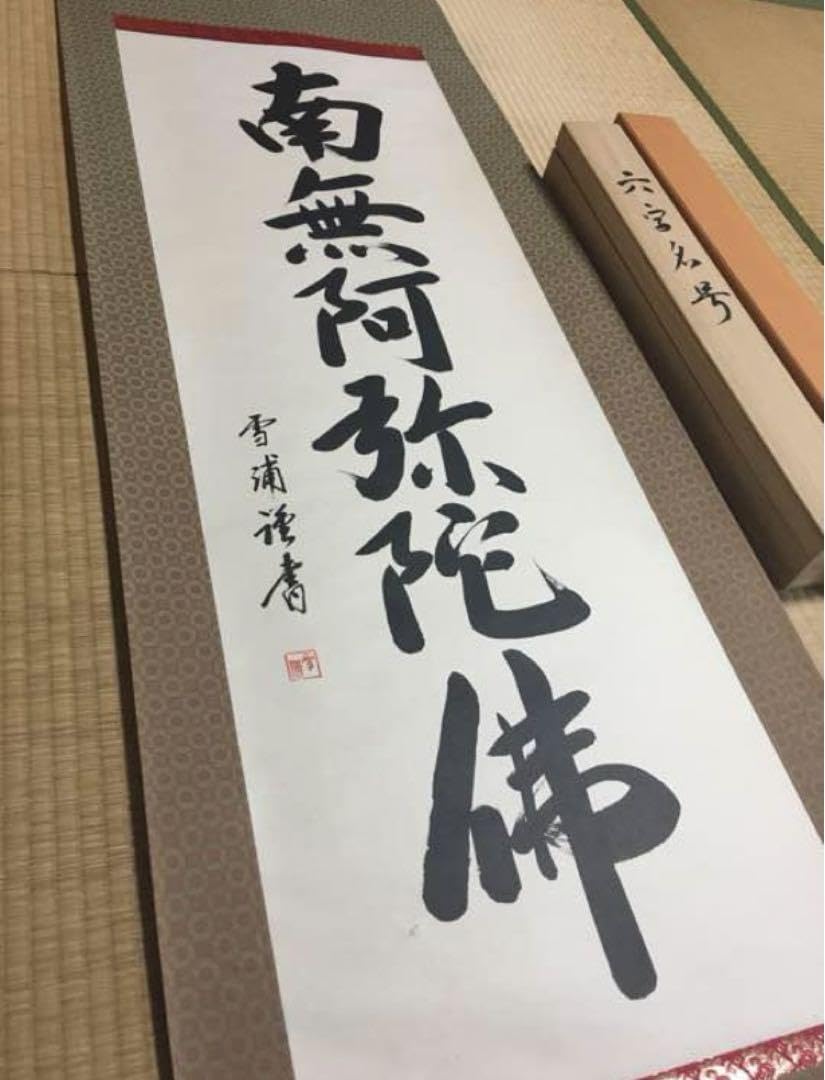 南無阿弥陀佛
雪浦謹書
六字名号